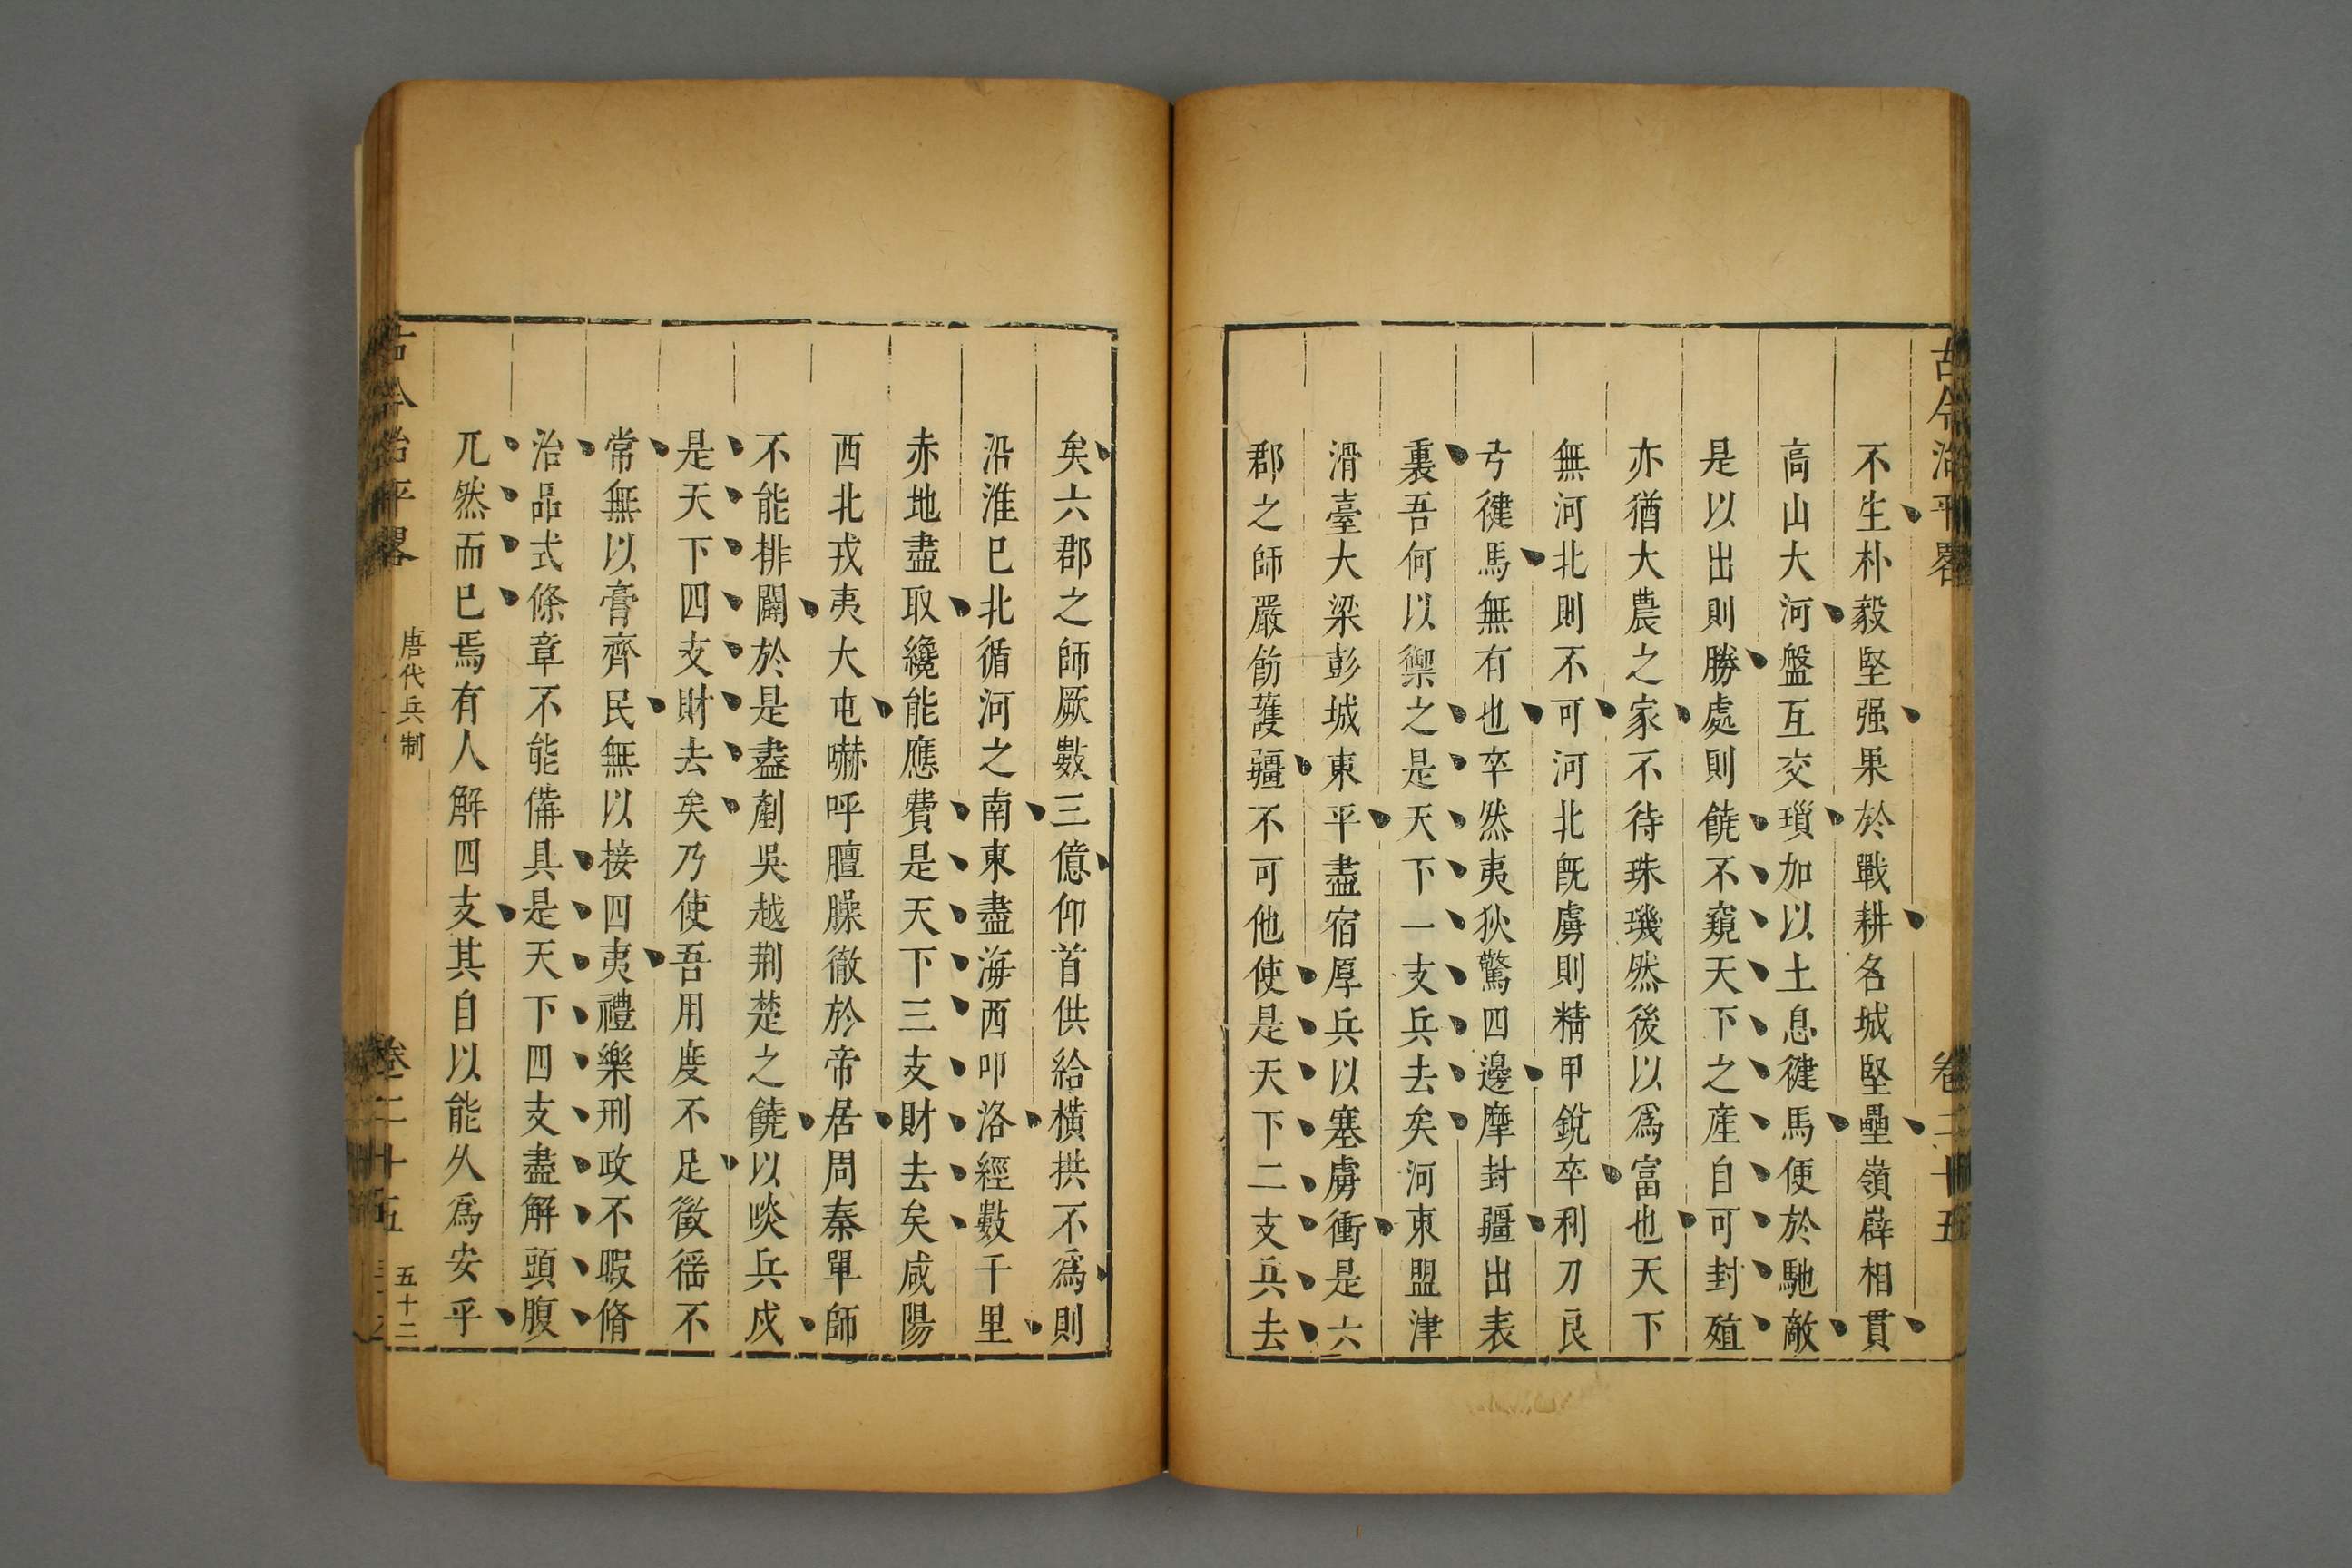 古今治平畧 卷二十五
不生朴毅堅强果於戰耕名城堅壘嶺嶭相貫
高山大河盤互交瑣加以土息健馬便於馳敵
是以出則勝處則饒不窺天下之產自可封殖
亦猶大農之家不待珠璣然後以爲富也天下
無河北則不可河北旣虜則精甲銳卒利刀良
弓健馬無有也卒然夷狄驚四邊摩封疆出表
裏吾何以禦之是天下一支兵去矣河東盟津
滑臺大梁彭城東平盡宿厚兵以塞虜衝是六
郡之師嚴飭護疆不可他使是天下二支兵去
矣六郡之師厥數三億仰首供給橫拱不爲則
沿淮已北循河之南東盡海西叩洛經數千里
赤地盡取纔能應費是天下三支財去矣咸陽
西北戎夷大屯嚇呼膻臊徹於帝居周秦單師
不能排闢於是盡剷吳越荆楚之饒以啖兵戍
是天下四支財去矣乃使吾用度不足徵徭不
常無以膏齊民無以接四夷禮樂刑政不暇脩
治品式條章不能備具是天下四支盡解頭腹
兀然而已焉有人解四支其自以能久爲安乎
古今治平畧 唐代兵制 卷二十五 五十二